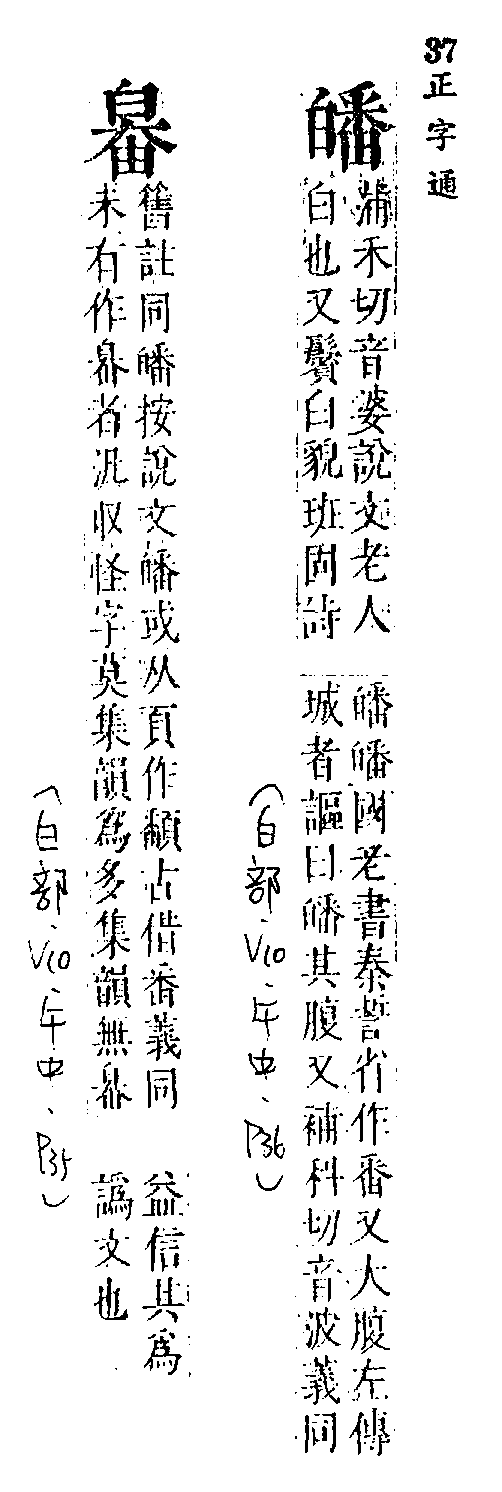 37 正字通
皤
蒲禾切音婆說文老人
白也又鬢白貌班固詩
皤皤國老書泰誓省作番又大腹左傳
城者謳曰皤其腹又補科切音波義同
(白部、V10、午中、P36)
舊註同皤按說文皤或从頁作顤古借番義同
未有作者汎収怪字莫集韻爲多集韻無
益信其爲
譌文也
(白部、V10、午中、P35)